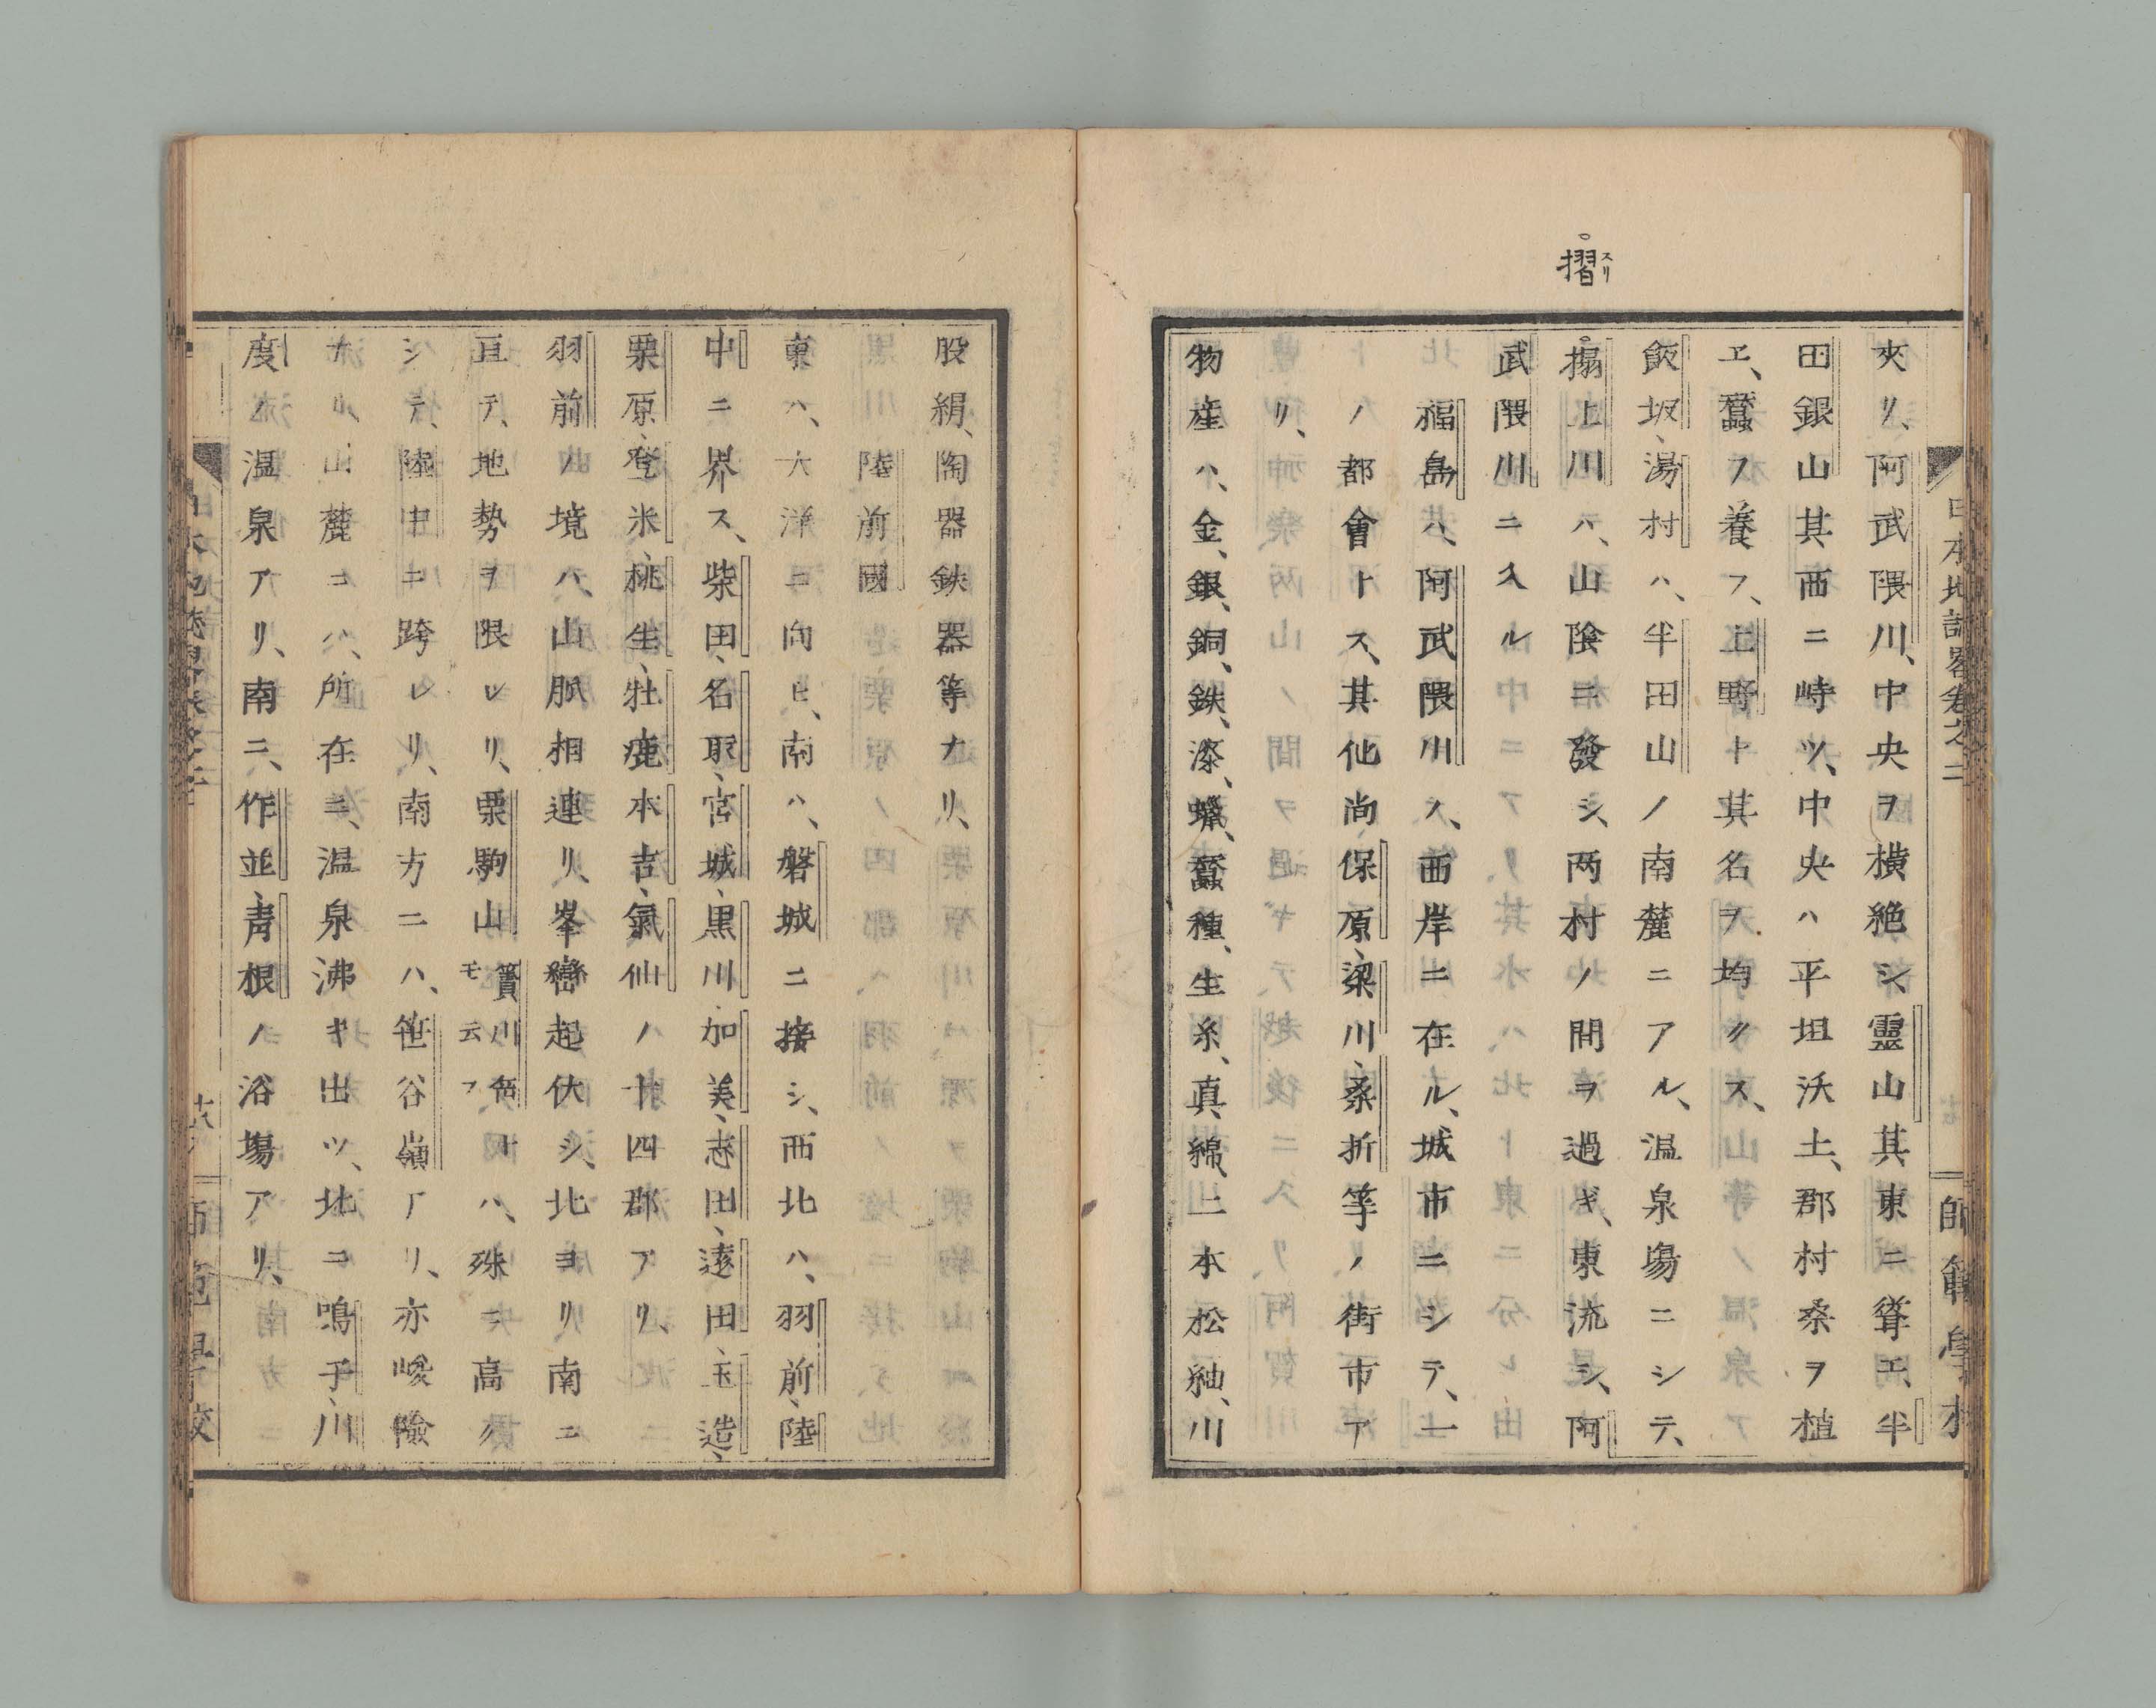 摺スリ
日本地誌畧卷之二
師範學校
夾リ、阿武隈川、中央ヲ横絶シ、靈山其東ニ聳エ、半
田銀山其西ニ峙ツ、中央ハ平坦沃土、郡村桑ヲ植
ヱ、蠶ヲ養フ、上野ト其名ヲ均クス、
飯坂、湯村ハ、半田山ノ南麓ニアル、温泉塲ニシテ、
搨上川ハ、山陰ニ發シ、两村ノ間ヲ過ギ、東流シ、阿
武隈川ニ入ル
福島ハ、阿武隈川ノ、西岸ニ在ル、城市ニシテ、一
ノ都會トス、其他尚保原、梁川、桑折等ノ街市ア
リ、
物産ハ、金、銀、銅、鉄、漆、蠟、蠶種、生糸、真綿、二本松紬、川
股絹、陶器鉄器等ナリ、
陸前國
東ハ、大洋ニ向ヒ、南ハ、磐城ニ接シ、西北ハ、羽前、陸
中ニ界ス、柴田、名取、宮城、黒川、加美、志田、遠田、玉造、
栗原、登米、桃生、牡鹿、本吉、氣仙ノ十四郡アリ、
羽前ノ境ハ、山脈相連リ、峯巒起伏シ、北ヨリ南ニ
亘テ、地勢ヲ限レリ、栗駒山須川岳トモ云フハ、殊ニ高ク
シテ、陸中ニ跨レリ、南方ニハ、笹谷嶺アリ、亦峻險
ナル山麓ニハ、所在ニ、温泉沸キ出ツ、北ニ鳴子、川
度ノ温泉アリ、南ニ、作並、青根ノ浴塲アリ、
日本地誌畧卷之二
廿八
師範學校